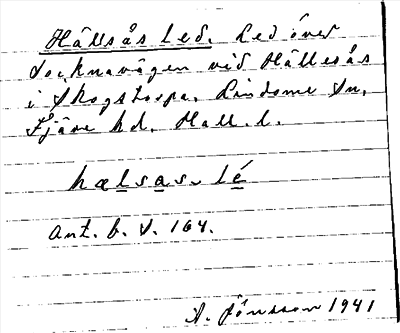 Hällsås Led. Led över
socknavägen vid Hällesås
i Skogstorpa. Lindome sn,
Fjäre hd. Hall. l.
hælsas. Lé
Ant. b. s. 164.
A. Jönsson 1941